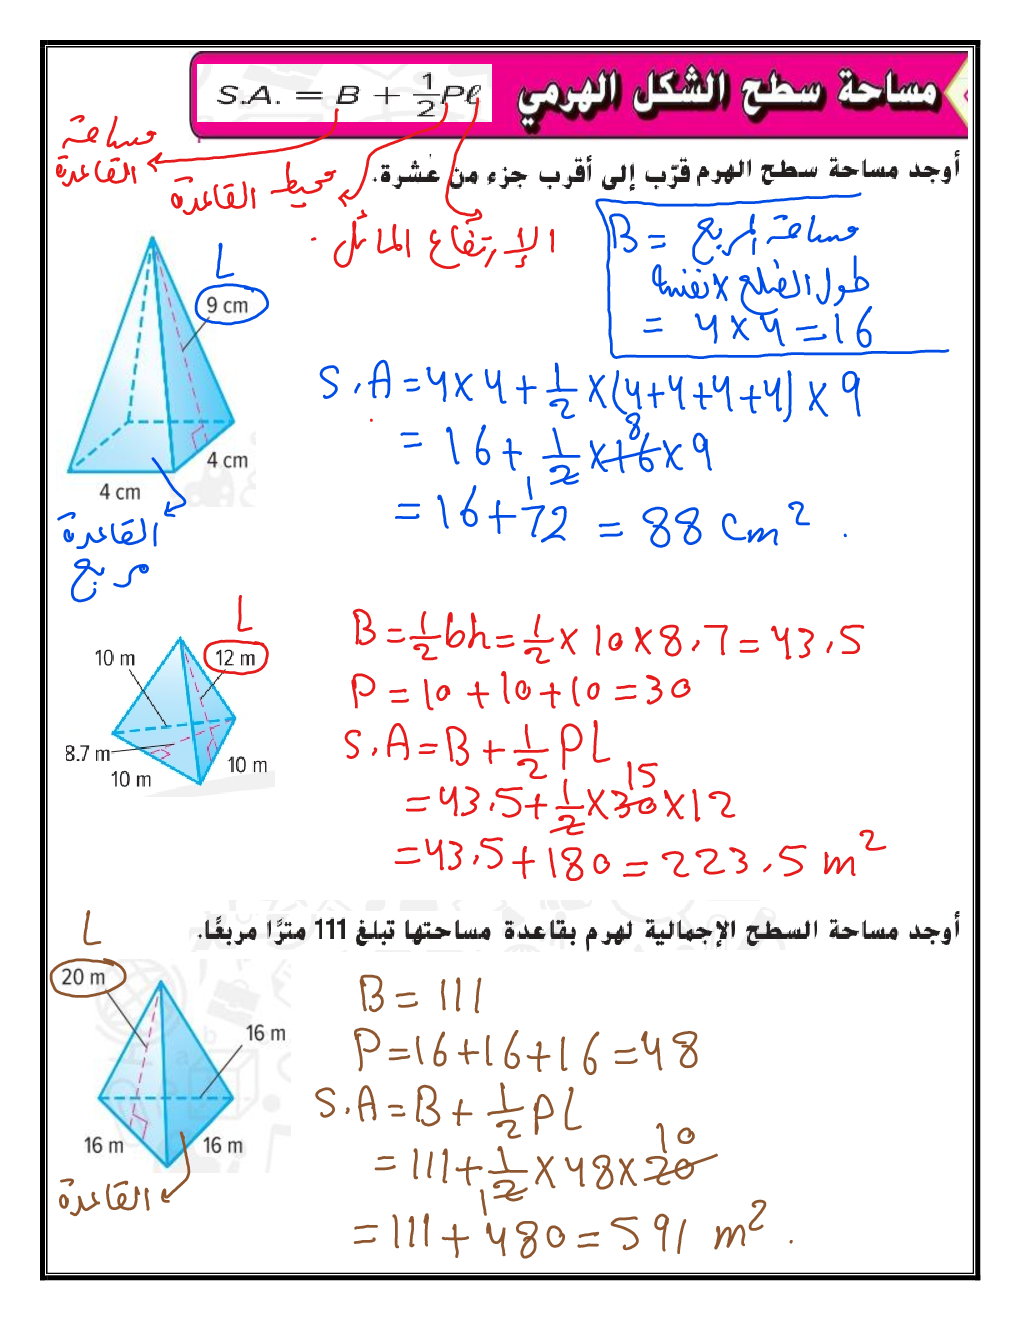 مساحة سطح الشكل الهرمي
S.A. = B + 1/2 Pℓ
مساحة القاعدة
محيط القاعدة
الإرتفاع المائل .
أوجد مساحة سطح الهرم قرّب إلى أقرب جزء من عُشرة.
B = مساحة المربع
طول الضلع × نفسه
= 4 × 4 = 16
L
9 cm
4 cm
4 cm
القاعدة
مربع
S.A = 4 × 4 + 1/2 × (4+4+4+4) × 9
= 16 + 1/2 × 16 × 9
8
1
= 16 + 72 = 88 cm² .
L
10 m
12 m
8.7 m
10 m
10 m
B = 1/2 bh = 1/2 × 10 × 8.7 = 43.5
P = 10 + 10 + 10 = 30
S.A = B + 1/2 PL
15
= 43.5 + 1/2 × 30 × 12
= 43.5 + 180 = 223.5 m²
أوجد مساحة السطح الإجمالية لهرم بقاعدة مساحتها تبلغ 111 مترًا مربعًا.
L
20 m
16 m
16 m
16 m
القاعدة
B = 111
P = 16 + 16 + 16 = 48
S.A = B + 1/2 PL
10
= 111 + 1/2 × 48 × 20
1
= 111 + 480 = 591 m² .